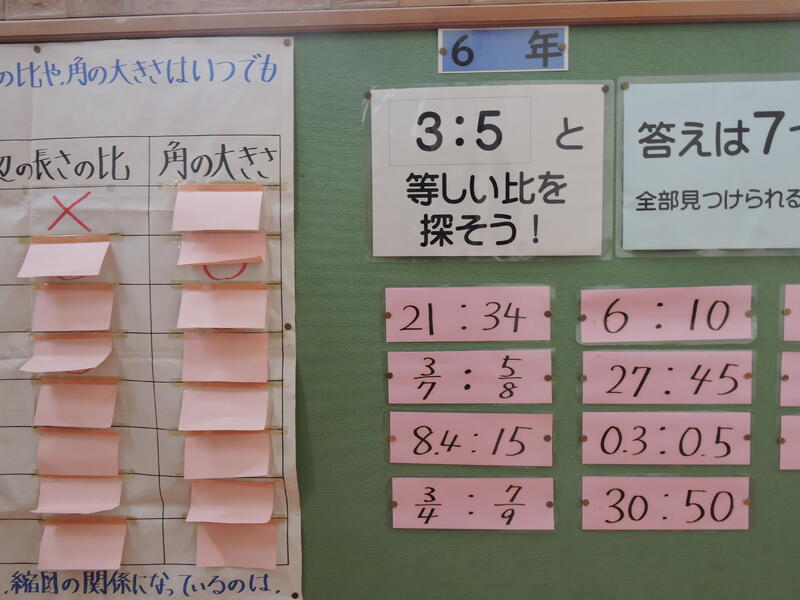 の比や、角の大きさはいつでも
の長さの比
角の大きさ
縮図の関係になっているのは、
6 年
3:5 と
等しい比を
探そう!
答えは7つ
全部見つけられる
21:34
6:10
3/7:5/8
27:45
8.4:15
0.3:0.5
3/4:7/9
30:50